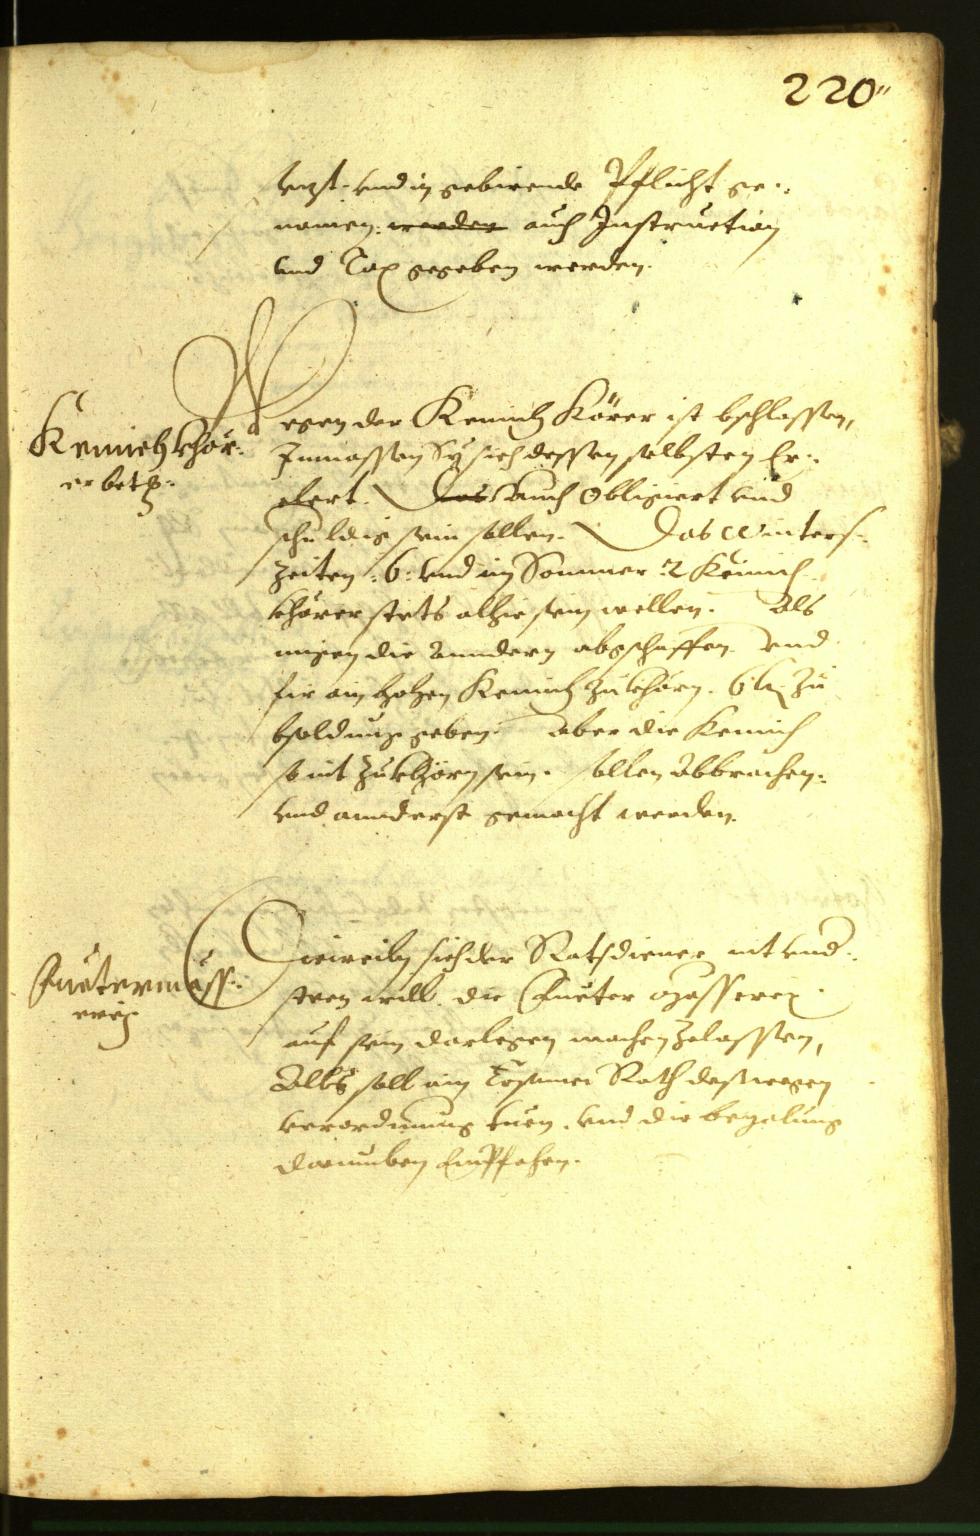 220
und in gebirende Pflicht ge-
nomen. werden auch Instruction
und Tax gegeben werden.
Kemich khör-
er betr:
Wegen der Kemich Körer ist bschlossen,
Inmassen Sy sich dessen selbsten Er-
clert. Das auch Obligiert und
schuldig sein sollen. Das Winters-
zeiten :6: und im Sommer :2 Kemich
khörer stets alhie sein wellen. Als
mügen die anndern abgschaffen und
fir ain hohen Kemich zukhörn. 6 k. zu
bsoldung geben. Aber die Kemich
so nit zukhörn sein. sollen Abbrochen:
und annderst gemacht werden.
Fuetermäss-
erey
Dieweiln sich der Ratsdiener nit und-
steen will. die Fueter
auf sein darlegen machen zelassen,
Alls soll ain Ersamer Rath desswegen
verordnung tuen. und die bezalung
darumben Empfahen.